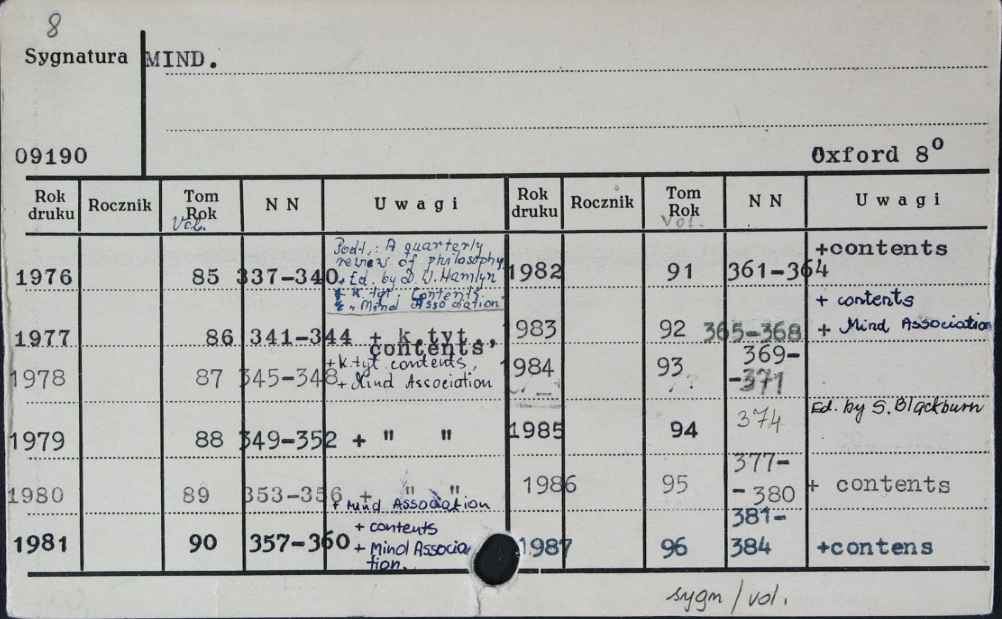 8
Sygnatura MIND.
09190 Oxford 8°
Rok druku Rocznik Tom Rok Vol. NN Uwagi Rok druku Rocznik Tom Rok Vol. NN Uwagi
Podt.: A quarterly
review of philosophy
+ Ed. by D. W. Hamlyn
+ k. tyt. Contents
+ Mind Association
1976 85 337-340
1977 86 341-344 + k.tyt.,
contents,
+ k. tyt contents,
1978 87 345-348 + Mind Association
1979 88 349-352 + " "
1980 89 353-356 + " "
+ Mind Association
+ contents
1981 90 357-360 + Mind Associa
tion.
+contents
1982 91 361-364
+ contents
1983 92 365-368 + Mind Association
369-
1984 93 -371
Ed. by S. Blackburn
1985 94 374
377-
1986 95 -380 + contents
381-
1987 96 384 +contens
sygn / vol.